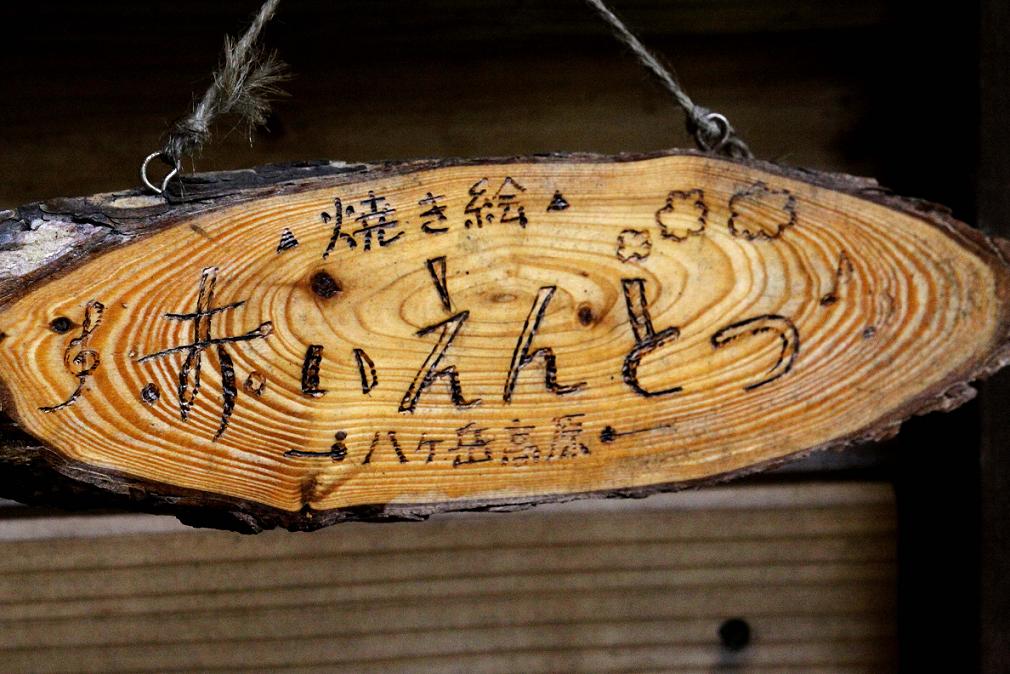 焼き絵
赤いえんとつ
八ヶ岳高原